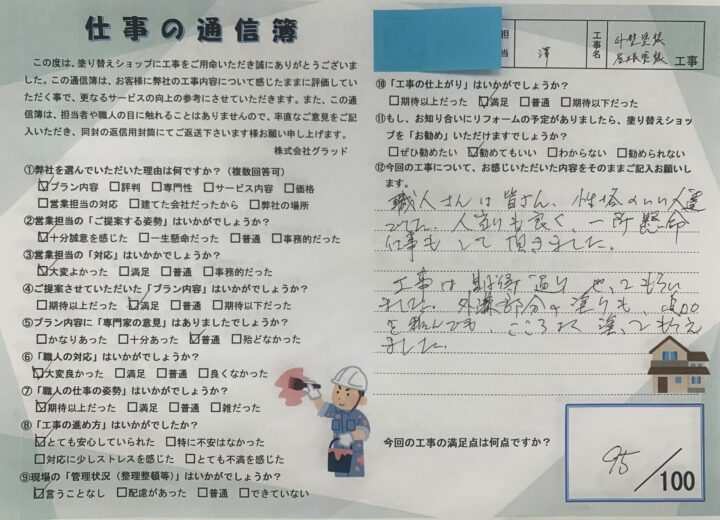 仕事の通信簿
この度は、塗り替えショップに工事をご用命いただき誠にありがとうございま
した。この通信簿は、お客様に弊社の工事内容について感じたままに評価してい
ただく事で、更なるサービスの向上の参考にさせていただきます。また、この通
信簿は、担当者や職人の目に触れることはありませんので、率直なご意見をご記
入いただき、同封の返信用封筒にてご返送下さいます様お願い申し上げます。
株式会社グラッド
①弊社を選んでいただいた理由は何ですか?(複数回答可)
☑プラン内容 □評判 □専門性 □サービス内容 □価格
□営業担当の対応 □建てた会社だったから □弊社の場所
②営業担当の「ご提案する姿勢」はいかがでしょうか?
☑十分誠意を感じた □一生懸命だった □普通 □事務的だった
③営業担当の「対応」はいかかでしょうか?
☑大変よかった □満足 □普通 □事務的だった
④ご提案させていただいた「プラン内容」はいかがでしょうか?
□期待以上だった ☑満足 □普通 □期待以下だった
⑤プラン内容に「専門家の意見」はありましたでしょうか?
□かなりあった □十分あった ☑普通 □殆どなかった
⑥「職人の対応」はいかがでしょうか?
☑大変良かった □満足 □普通 □良くなかった
⑦「職人の仕事の姿勢」はいかがでしょうか?
☑期待以上だった □満足 □普通 □雑だった
⑧「工事の進め方」はいかがでしたか?
☑とても安心していられた □特に不安はなかった
□対応に少しストレスを感じた □とても不満を感じた
⑨現場の「管理状況(整理整頓等)」はいかがでしょうか?
☑言うことなし □配慮があった □普通 □できていない
担当 澤 工事名 外壁塗装 屋根塗装 工事
⑩「工事の仕上がり」はいかがでしょうか?
□期待以上だった ☑満足 □普通 □期待以下だった
⑪もし、お知り合いにリフォームの予定がありましたら、塗り替えショッ
プを「お勧め」いただけますでしょうか?
□ぜひ勧めたい ☑勧めてもいい □わからない □勧められない
⑫今回の工事について、お感じいただいた内容をそのままご記入お願いし
ます。
職人さんは皆さん、性格のいい人達
でした。人当りも良く、一所懸命
仕事もして頂きました。
工事は期待通り やってもらい
ました。外溝部分の塗りも、
を 、こころよく塗ってもらえ
ました。
今回の工事の満足点は何点ですか?
95/100